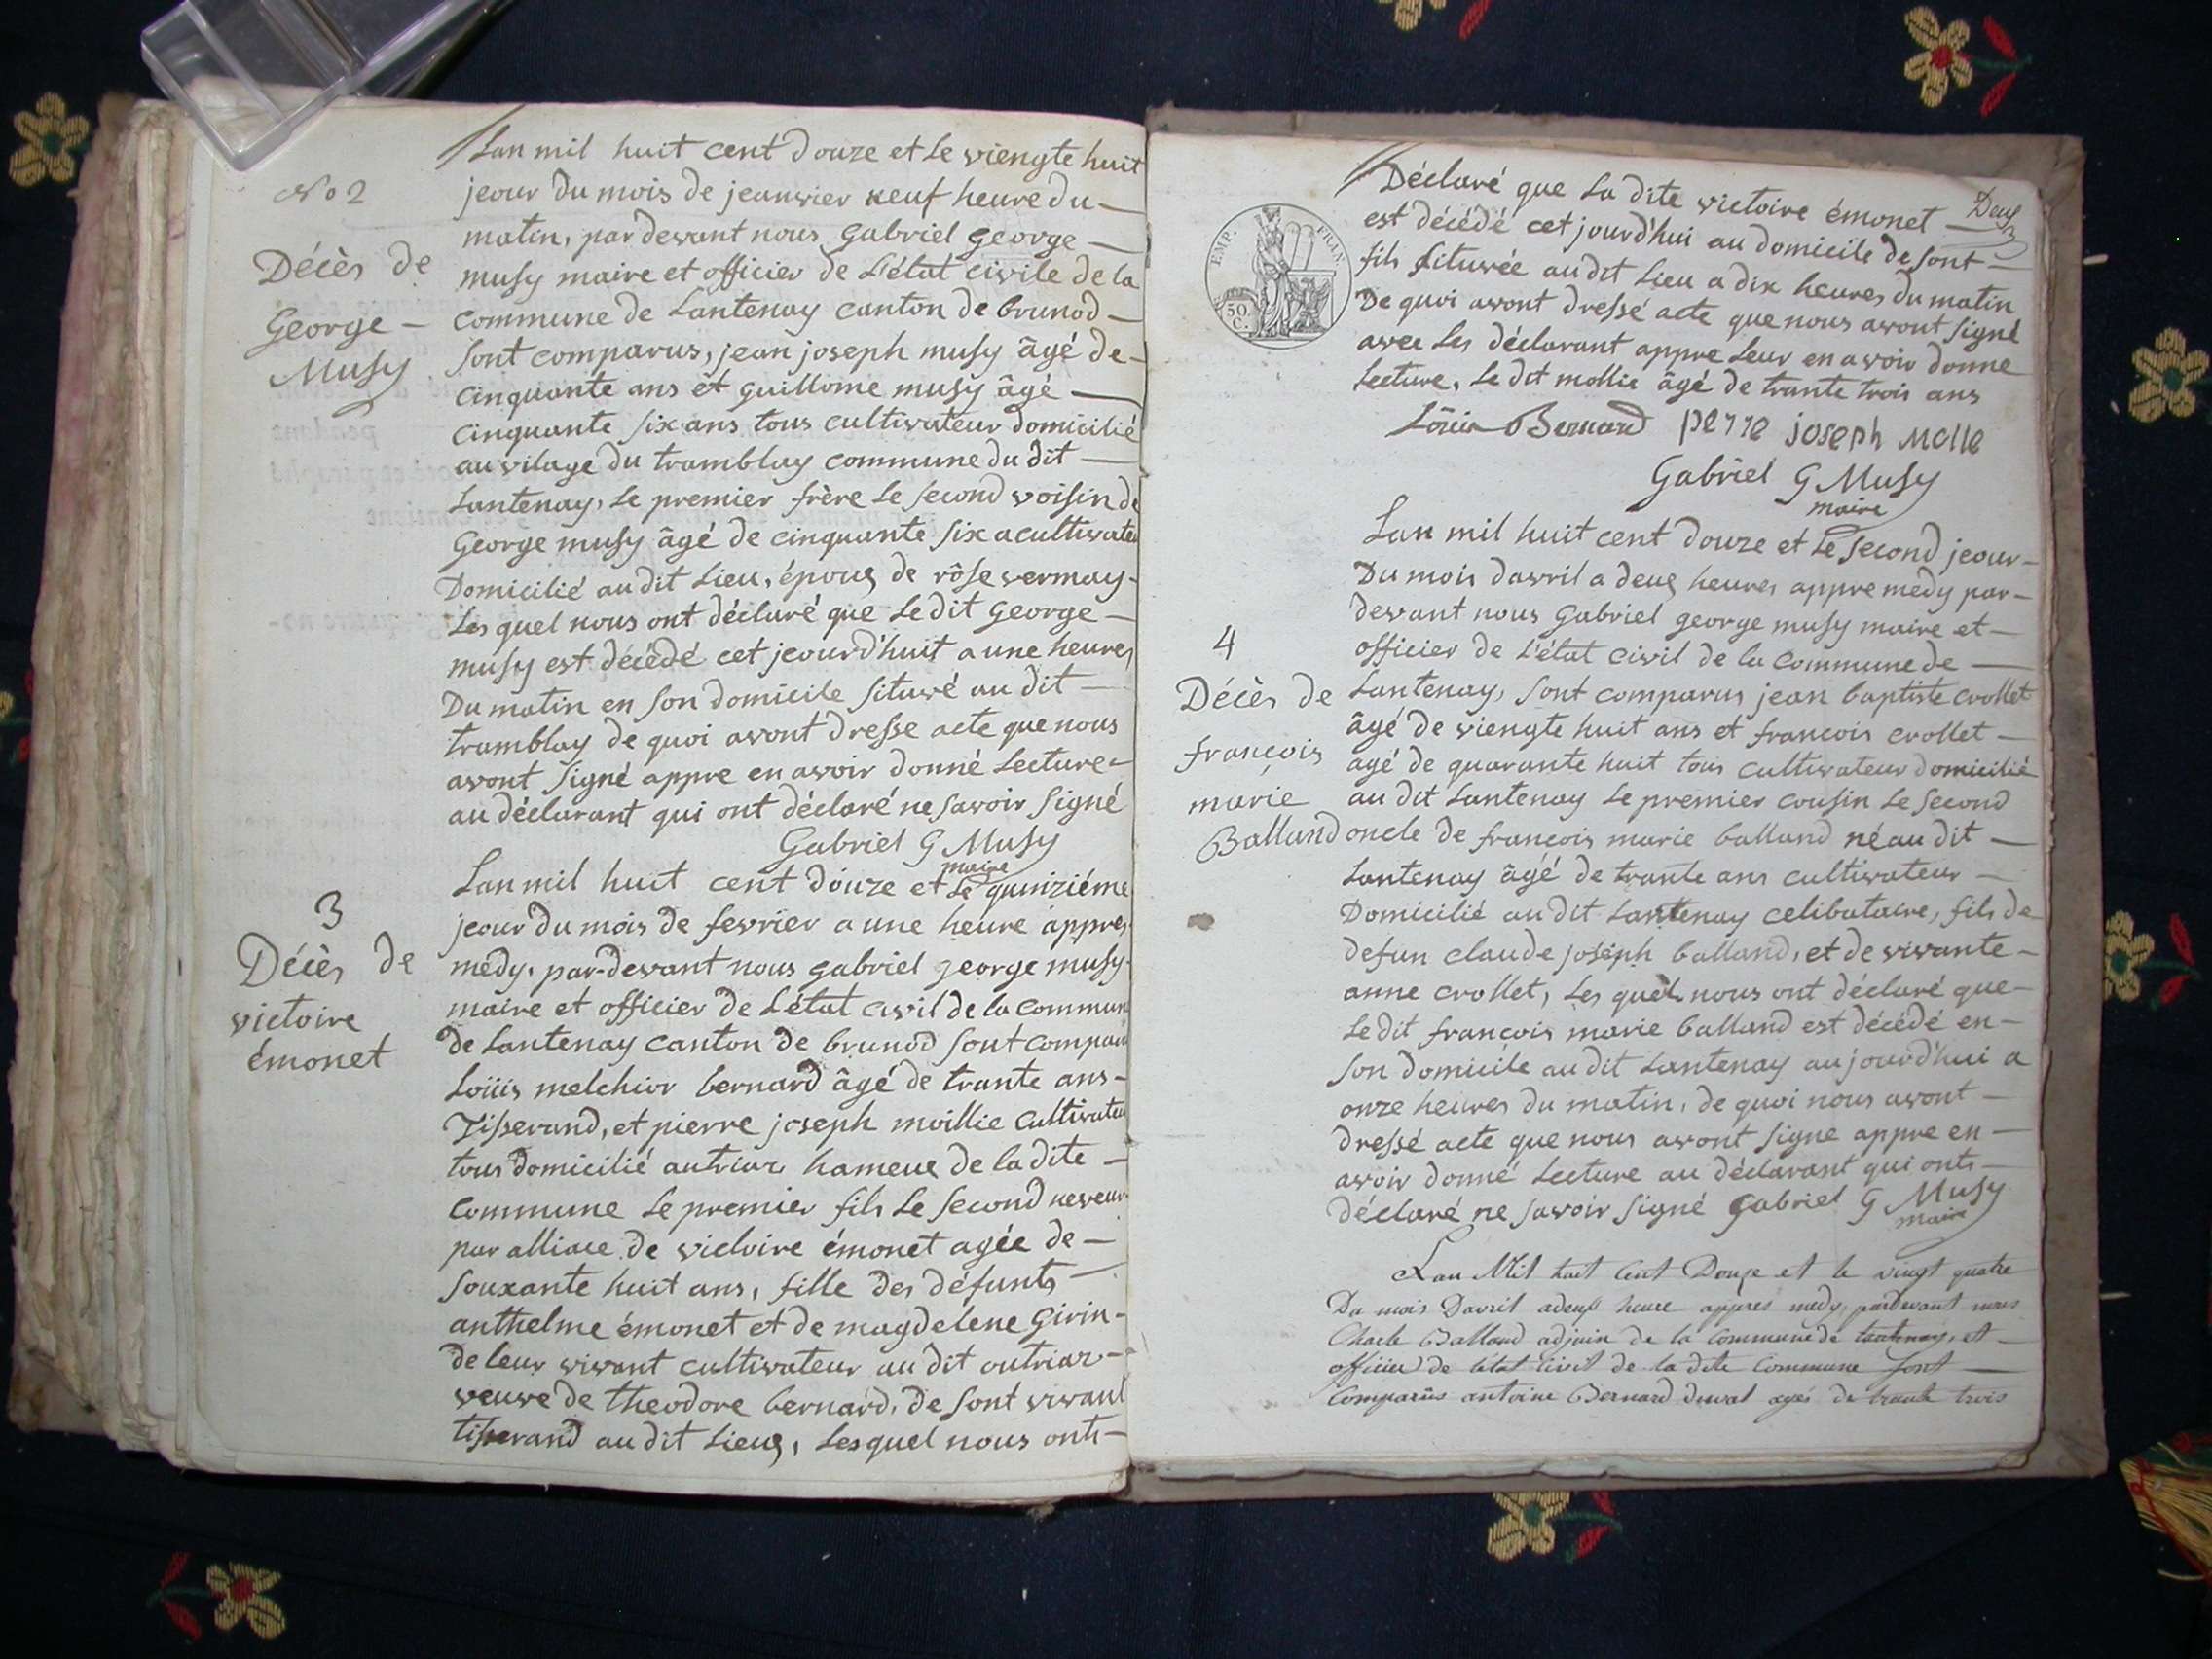 No 2
Décès de
George –
Musy
Lan mil huit cent douze et le viengte huit
jeour du mois de jeanvier neuf heure du –
matin, par devant nous Gabriel George –
musy maire et officier de L'état civile de la
commune de Lantenay canton de brunod –
sont comparus, jean joseph musy âgé de –
cinquante ans et guillome musy âgé –
cinquante six ans tous cultivateur domicilié
au vilage du tramblay commune du dit –
Lantenay, Le premier frère Le second voisin de
George musy âgé de cinquante six a cultivateu
Domicilié au dit Lieu, époug de rôse vermay –
Les quel nous ont déclaré que Le dit George –
musy est décédé cet jeourd'huit a une heures
Du matin en son domicile situvé au dit –
tramblay de quoi avont dresse acte que nous
avont signé appre en avoir donné Lecture –
au déclarant qui ont déclaré ne savoir signé
Gabriel G Musy
maire
3
Décès de
victoire
émonet
Lan mil huit cent douze et Le quinziéme
jeour du mois de fevrier a une heure appres
medy, par-devant nous gabriel george musy –
maire et officier de L'état civil de la commun
de Lantenay canton de brunod sont comparu
Loüis melchior bernard âgé de trante ans –
Tisserand, et pierre joseph moillie cultivateu
tous domicilié autriar hameue de la dite –
commune Le premier fils Le second neveur
par alliace de victoire émonet agée de –
souxante huit ans, fille des défunts –
anthelme émonet et de magdeléne Girin –
de leur vivant cultivateur au dit outriar –
veuve de theodore bernard, de sont vivant
tisserand au dit Lieug, Lesquel nous onts –
Deug
EMP. FRAN.
50.
C.
Déclaré que La dite victoire émonet –
est décédé cet jourd'hui au domicile de sont –
fils situvée au dit Lieu a dix heures du matin
De quoi avont dressé acte que nous avont signé
avec Les déclarant appre Leur en avoir donne
Lecture, Le dit mollie âgé de trante trois ans
Loüis Bernard pe77e joseph Molle
Gabriel G Musy
maire
4
Décès de
françois
marie
Balland
Lan mil huit cent douze et Le second jeour –
Du mois davril a deug heures appre medy par –
devant nous Gabriel george musy maire et –
officier de L'état civil de la commune de –
Lantenay, sont comparus jean baptiste crollet
âgé de viengte huit ans et francois crollet –
agé de quarante huit tous cultivateur domicilié
au dit Lantenay Le premier cousin Le second
oncle de francois marie balland né au dit –
Lantenay âgé de trante ans cultivateur –
Domicilié au dit Lantenay celibataire, fils de
defun claude joseph balland, et de vivante –
anne crollet, Les quels nous ont déclaré que –
Le dit francois marie balland est décédé en –
son domicile au dit Lantenay aujourd'hui a
onze heures du matin, de quoi nous avont –
dressé acte que nous avont signe appre en –
avoir donné Lecture au déclarant qui onts –
déclaré ne savoir signé Gabriel G Musy
maire
Lan Mil huit Cent Douze et le vingt quatre
Du mois Davril adeux heure appres medy, pardevant nous
Charle Balland adjoin de la Commune de Lantenay, et –
officier de létat Civil de la dite Commune sont –
Comparûs antoine Bernard duval agés de trante trois